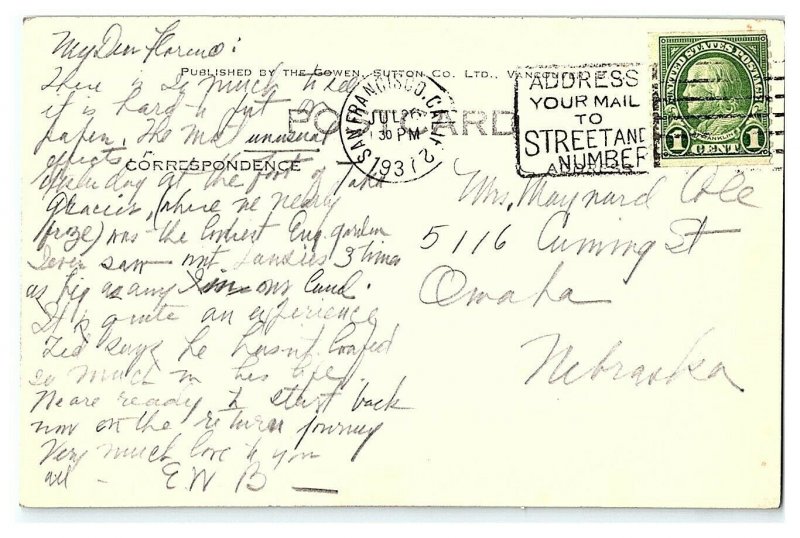 My Dear Florence:
PUBLISHED BY THE GOWEN, SUTTON CO. LTD., VANCOUVER, B.
There is so much to see
it is hard to put on
paper, the most unusual
POSTCARD
effects
CORRESPONDENCE
yesterday at the foot of
Glacier, (where we nearly
froze) was the loveliest Eng. garden
I ever saw with Pansies 3 times
as big as any in our land.
It's quite an experience
Ted says he hasn't loafed
so much in his life.
We are ready to start back
now on the return journey
Very much love to you
all - E W B -
SAN FRANCISCO, CALIF.
JUL 26
30 PM
1937
2
ADDRESS
YOUR MAIL
TO
STREET AND
NUMBER
UNITED STATES POSTAGE
FRANKLIN
1 CENT 1
Mrs. Maynard Cole
5116 Cuming St
Omaha
Nebraska